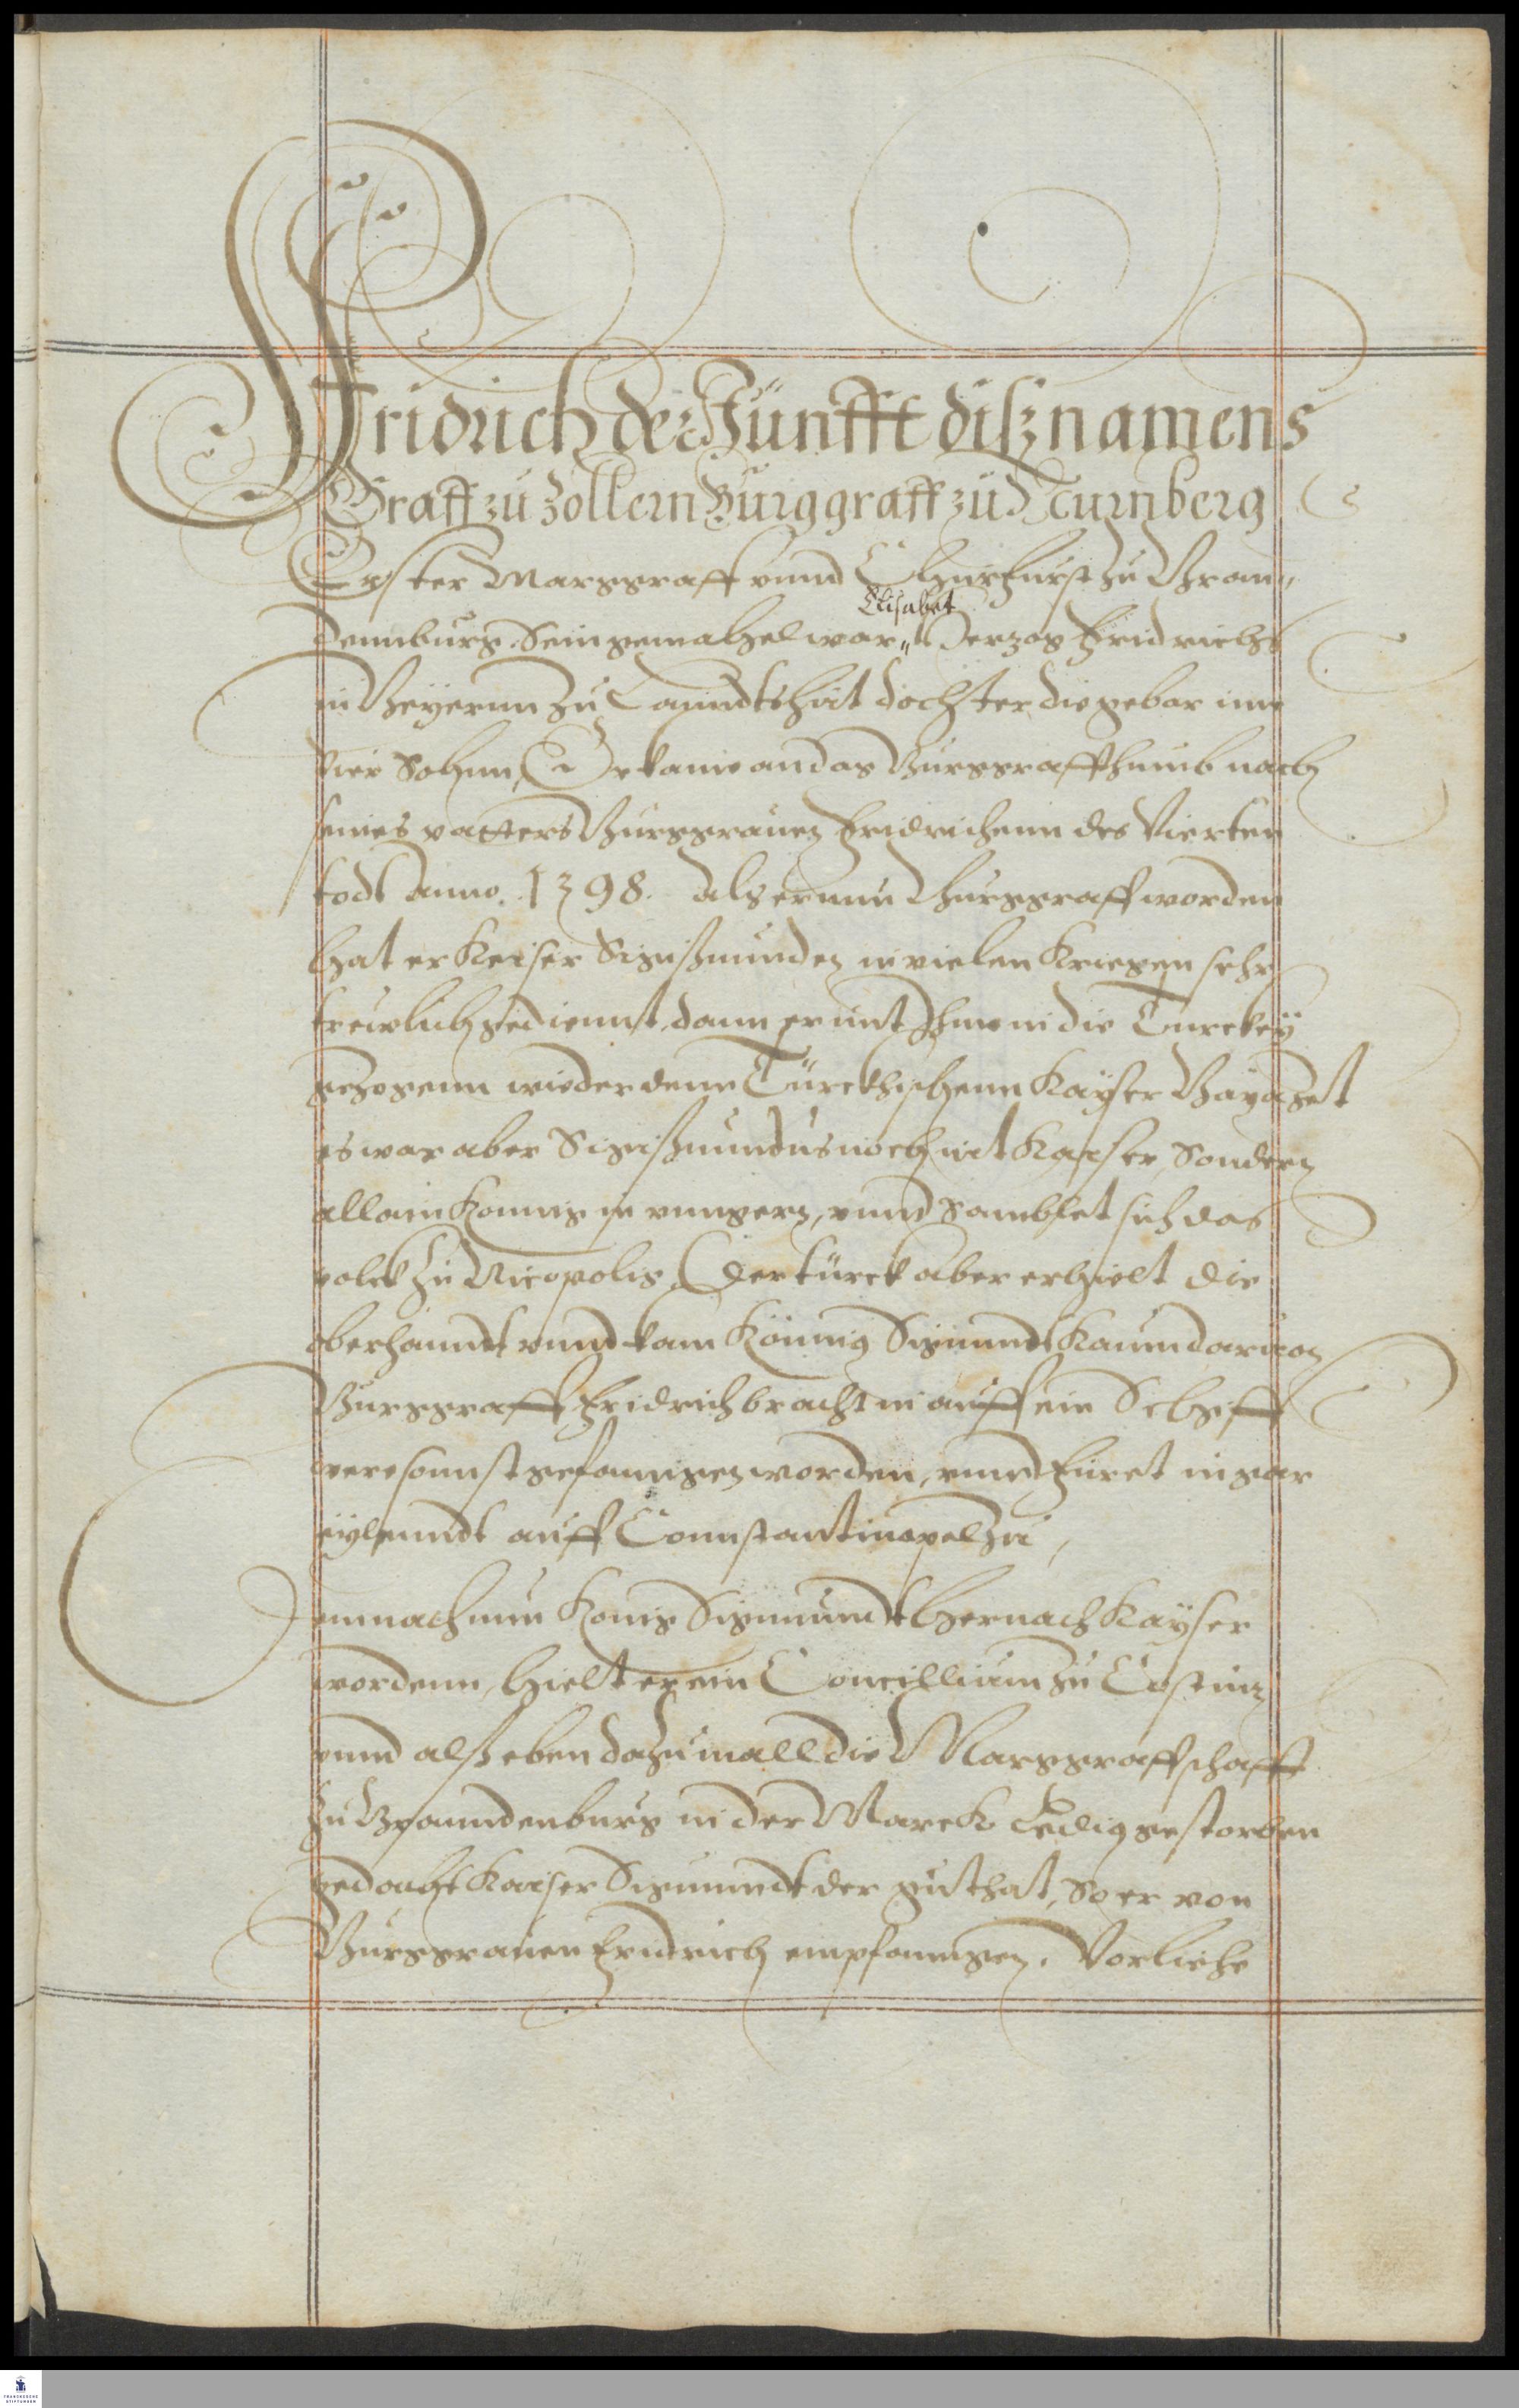 Fridrich der Fünfft disz namens
Graff zu Zollern Burggraff zu Nurnberg
Erster Marggraff vnnd Churfurst zu Bran„
Elisabet
dennburg. Sein gemahel war„ Herzog Fridrichs
in Beyernn zu Lanndtshut dochter die gebar ime
vier Sohnn, Er kame an das Burggraffthumb nach
seines vatters Burggrauen Fridrichenn des Vierten
todt Anno. 1398. Als er nun Burggraff worden
hat er Keiser Sigißmunden in vielen Kriegen sehr
trewlich gediennt, dann er mit Ihme in die Turckey
gezogenn wieder denn Türckhischenn Kayser Bayazet
es war aber Sigißmundus noch nit Kayser, Sondern
allain Konnig in vnngern, vnnd Samblet sich das
volck zu Nicopolis, Der türck aber erhielt die
oberhanndt vnnd kam Könnig Sigmundt kaum daruon
Burggraff Fridrich bracht in auff ein Schiff
wer sonnst gefanngen worden, vnnd Füret in gar
eylenndt auff Connstantinopel zu,
Demnach nun Konig Sigmundt hernach Kayser
wordenn, hielt er ein Concillium zu Costniz
vnnd alß eben dazumall die Marggraffschafft
zu Branndenburg in der Marck Ledig gestorben
gedacht Kaiser Sigmundt der gutthat, So er von
Burggrauen Fridrich empfanngen. Vorliehe
FRANCKESCHE
STIFTUNGEN